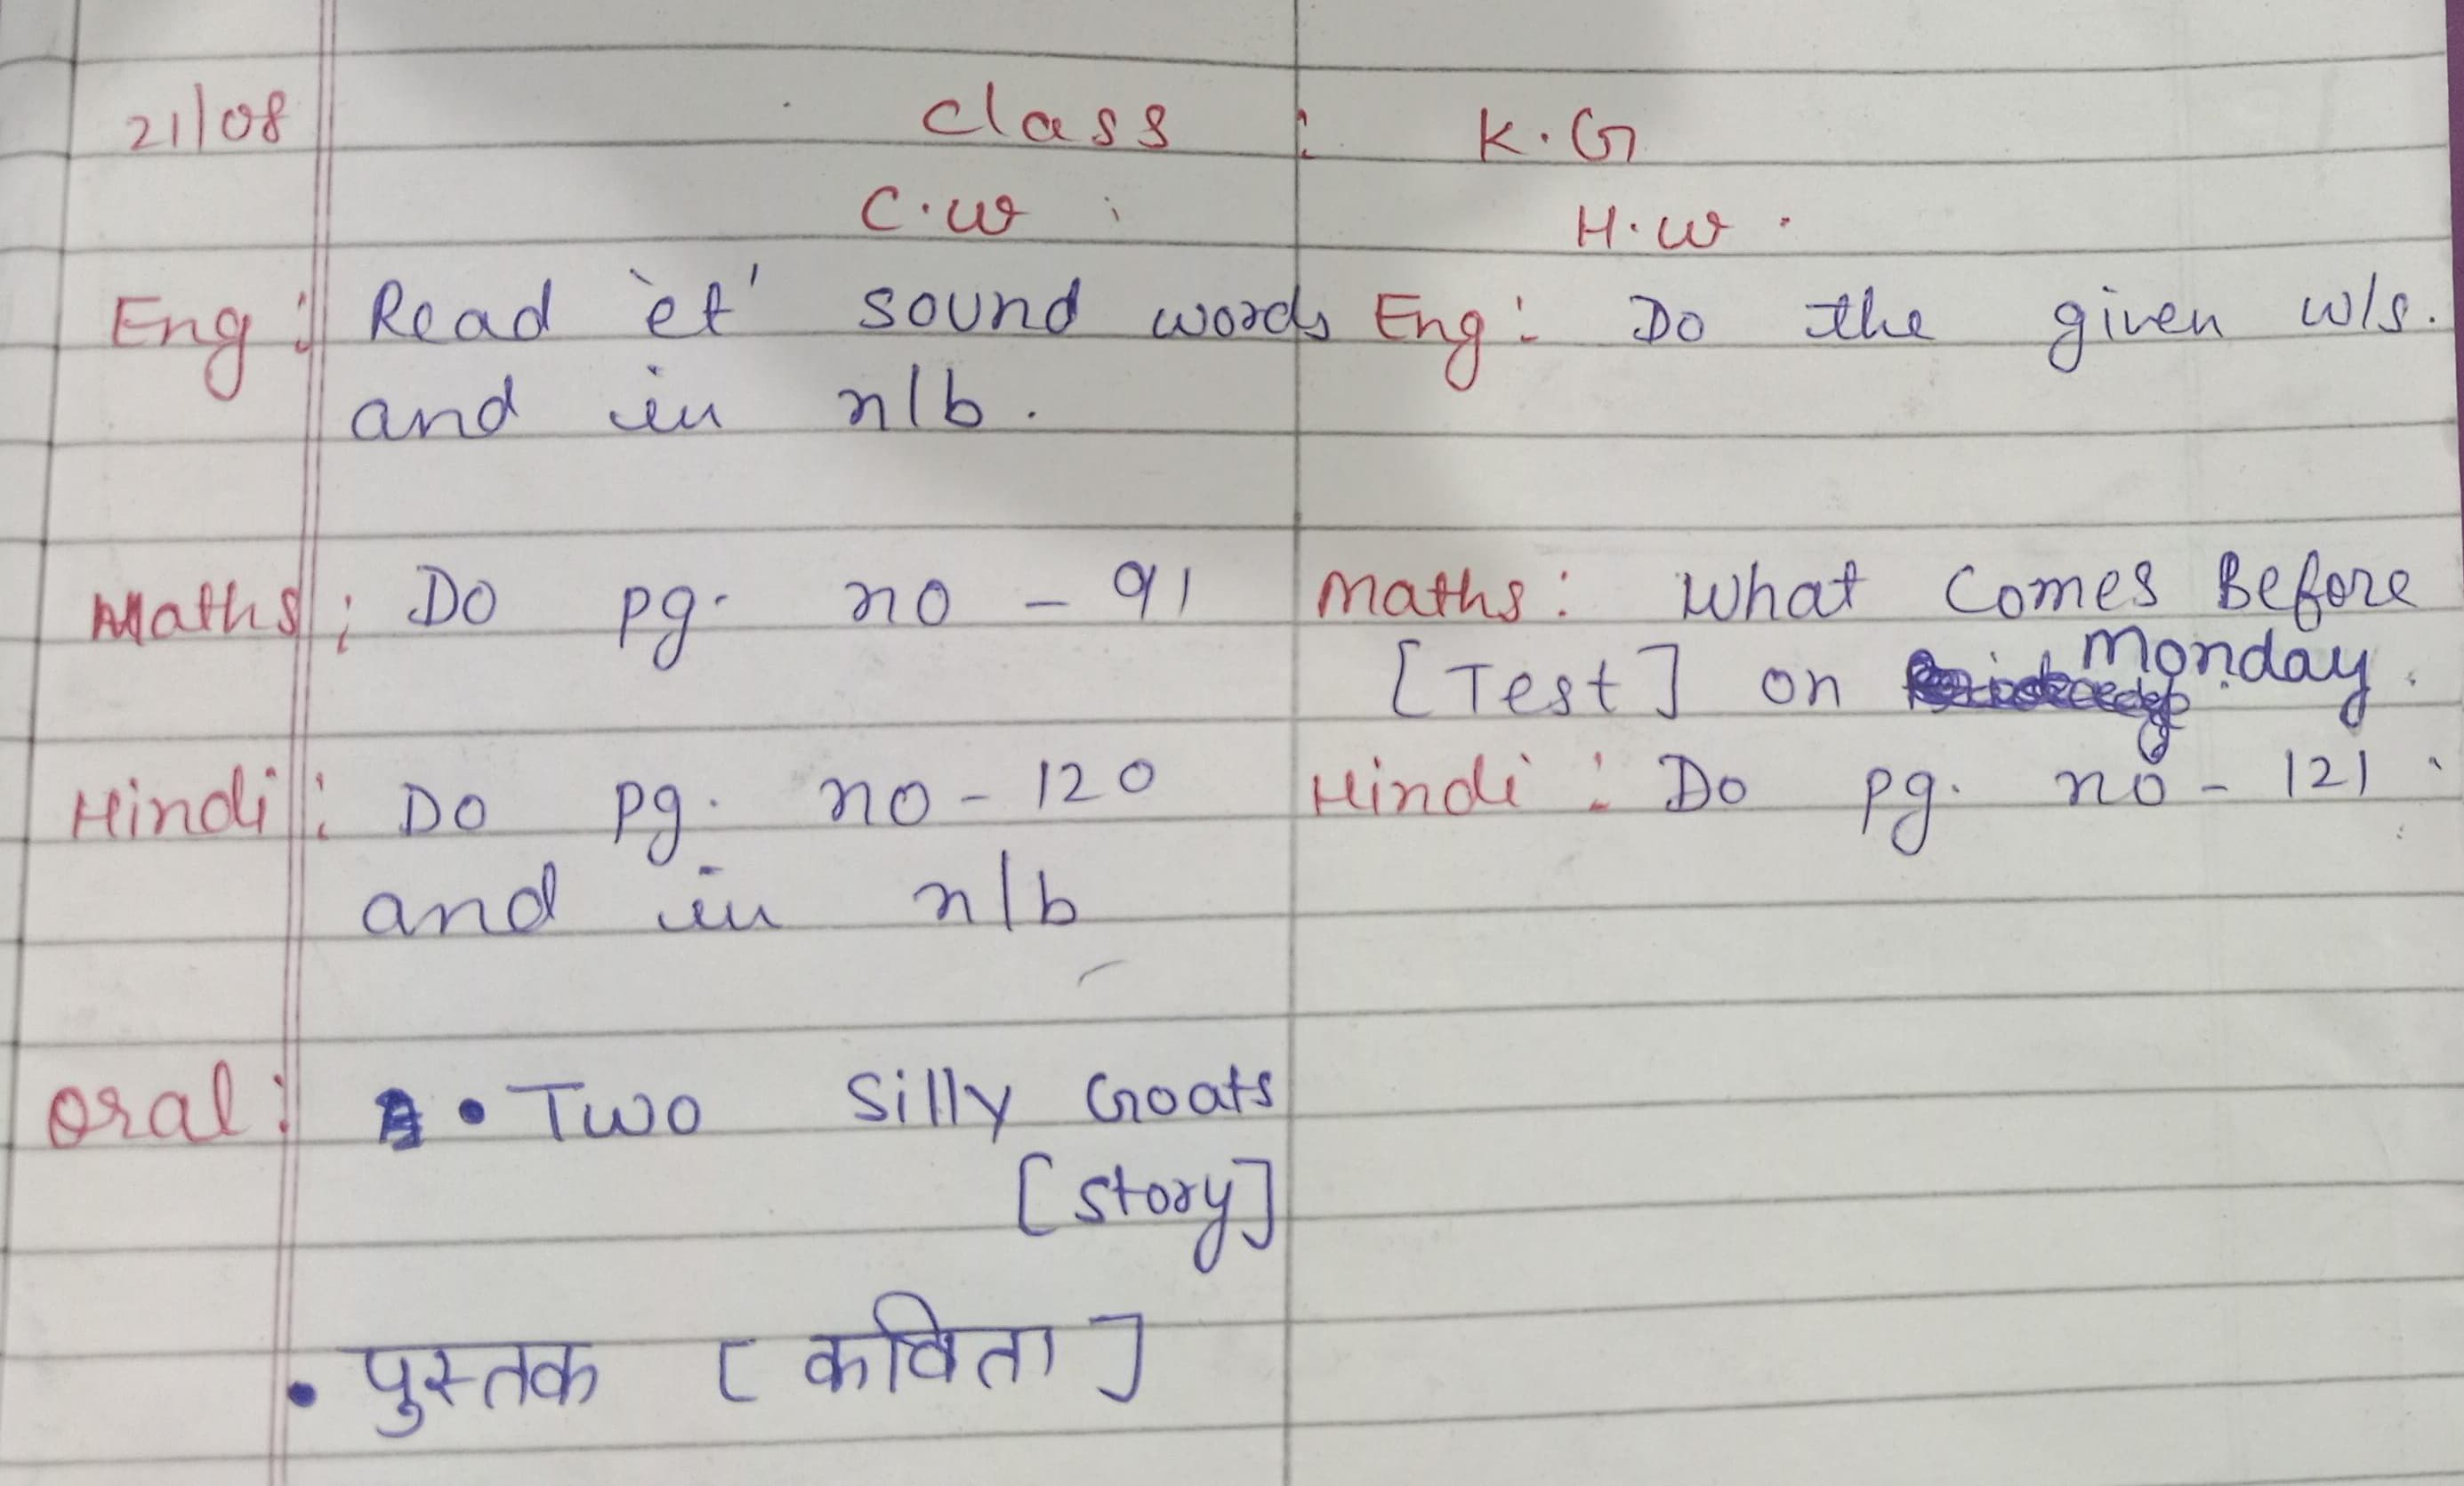 21/08 Class : K.G
C.W : H.W .
Eng : Read 'et' sound words Eng : Do the given w/s.
and in n/b .
Maths : Do pg. no - 91 Maths : What Comes Before
[Test] on Monday .
Hindi : Do pg. no - 120 Hindi : Do pg. no - 121 .
and in n/b
Oral : • Two Silly Goats
[Story]
• पुस्तक [ कविता ]